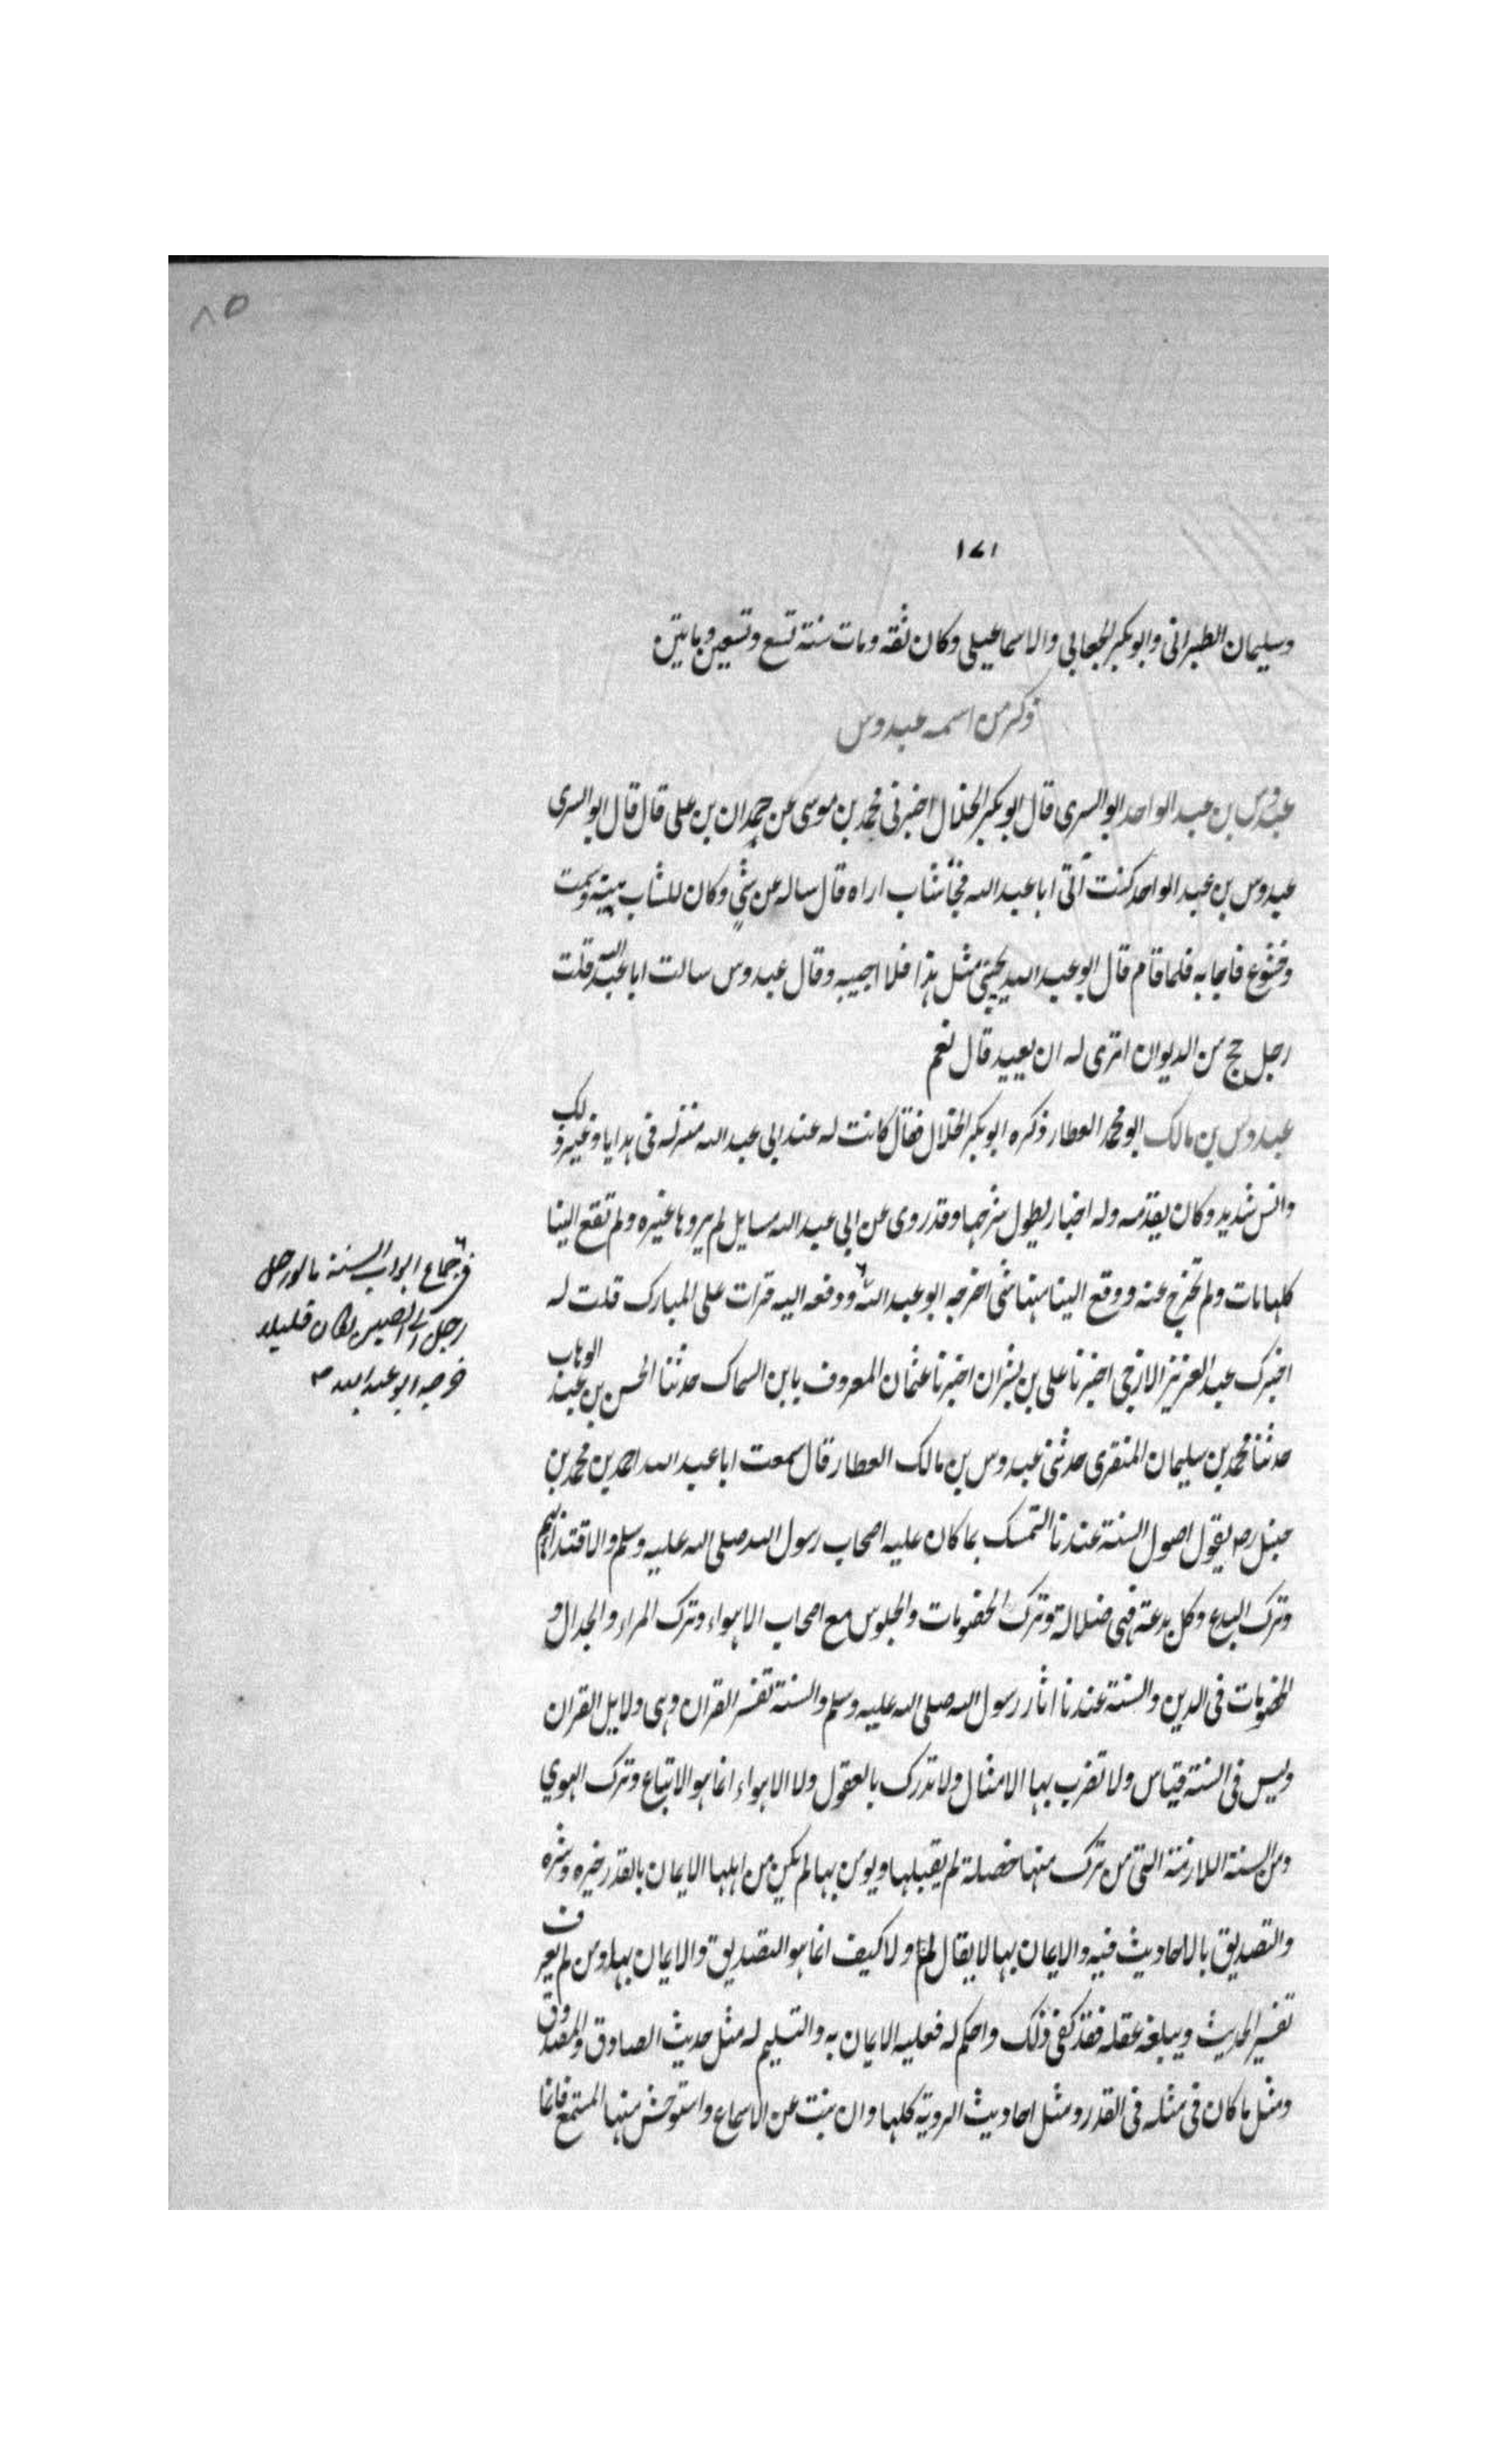 ٨٥
١٧١
وسليمان الطبراني وابو بكر الجعابي والاسماعيلي وكان ثقة ومات سنة تسع وتسعين ومايتين
ذكر من اسمه عبدوس
عبدوس بن عبد الواحد ابو السري قال ابو بكر الخلال اخبرني محمد بن موسى عن حمدان بن علي قال قال ابو السري
عبدوس بن عبد الواحد كنت آتي ابا عبد الله فجآ شاب اراه قال ساله عن شي وكان للشاب هيئة وسمت
وخشوع فاجابه فلما قام قال ابو عبد الله يجيئني مثل هذا فلا اجيبه وقال عبدوس سالت ابا عبد الله قلت
رجل حج من الديوان اترى له ان يعيد قال نعم
عبدوس بن مالك ابو محمد العطار ذكره ابو بكر الخلال فقال كانت له عند ابي عبد الله منزلة في هدايا وغير ذلك
وانس شديد وكان يقدمه وله اخبار يطول شرحها وقد روى عن ابي عبد الله مسايل لم يروها غيره ولم تقع الينا
كلها مات ولم تخرج عنه ووقع الينا منها شي اخرجه ابو عبد الله ودفعه اليه قرات على المبارك قلت له
في جماع ابواب السنة ما لو رحل
رجل الى الصين لكان قليلا
اخرجه ابو عبد الله
اخبرك عبد العزيز الازجي اخبرنا علي بن بشران اخبرنا عثمان المعروف بابن السماك حدثنا الحسن بن عبد الوهاب
حدثنا محمد بن سليمان المنقري حدثني عبدوس بن مالك العطار قال سمعت ابا عبد الله احمد بن محمد بن
حنبل رضه يقول اصول السنة عندنا التمسك بما كان عليه اصحاب رسول الله صلى الله عليه وسلم والاقتدا بهم
وترك البدع وكل بدعة فهي ضلالة وترك الخصومات والجلوس مع اصحاب الاهواء وترك المراء والجدال و
الخصومات في الدين والسنة عندنا اثار رسول الله صلى الله عليه وسلم والسنة تفسر القران وهي دلايل القران
وليس في السنة قياس ولا تضرب بها الامثال ولا تدرك بالعقول ولا الاهواء انما هو الاتباع وترك الهوي
ومن السنة اللازمة التي من ترك منها خصلة لم يقبلها ويومن بها لم يكن من اهلها الايمان بالقدر خيره وشره
والتصديق بالاحاديث فيه والايمان بها لا يقال لم ولا كيف انما هو التصديق والايمان بها ومن لم يعرف
تفسير الحديث ويبلغه عقله فقد كفي ذلك واحكم له فعليه الايمان به والتسليم له مثل حديث الصادق والمصدوق
ومثل ما كان في مثله في القدر ومثل احاديث الروية كلها وان نبت عن الاسماع واستوحش منها المستمع فانما